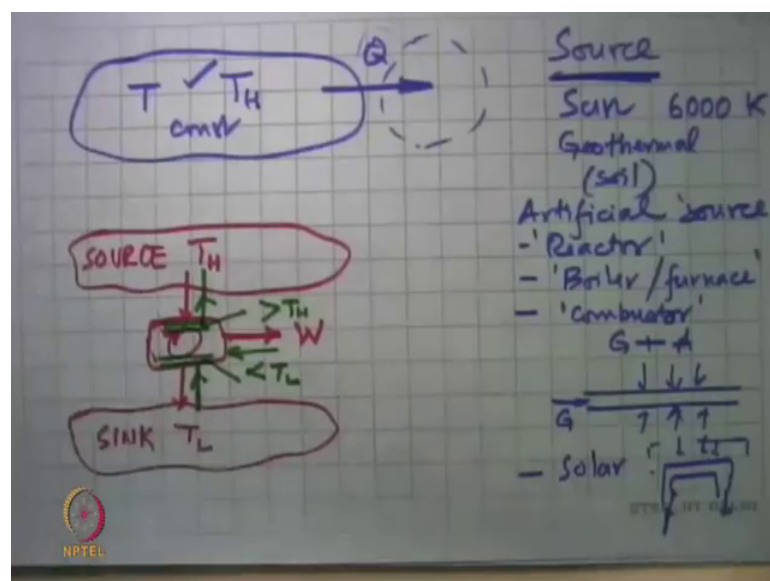 Q
T ✓ T_H
const
SOURCE T_H
>T_H
W
<T_L
SINK T_L
Source
Sun 6000 K
Geothermal
(soil)
Artificial source
- 'Reactor'
- 'Boiler/furnace'
- 'Combustor'
G + A
G
- Solar
NPTEL